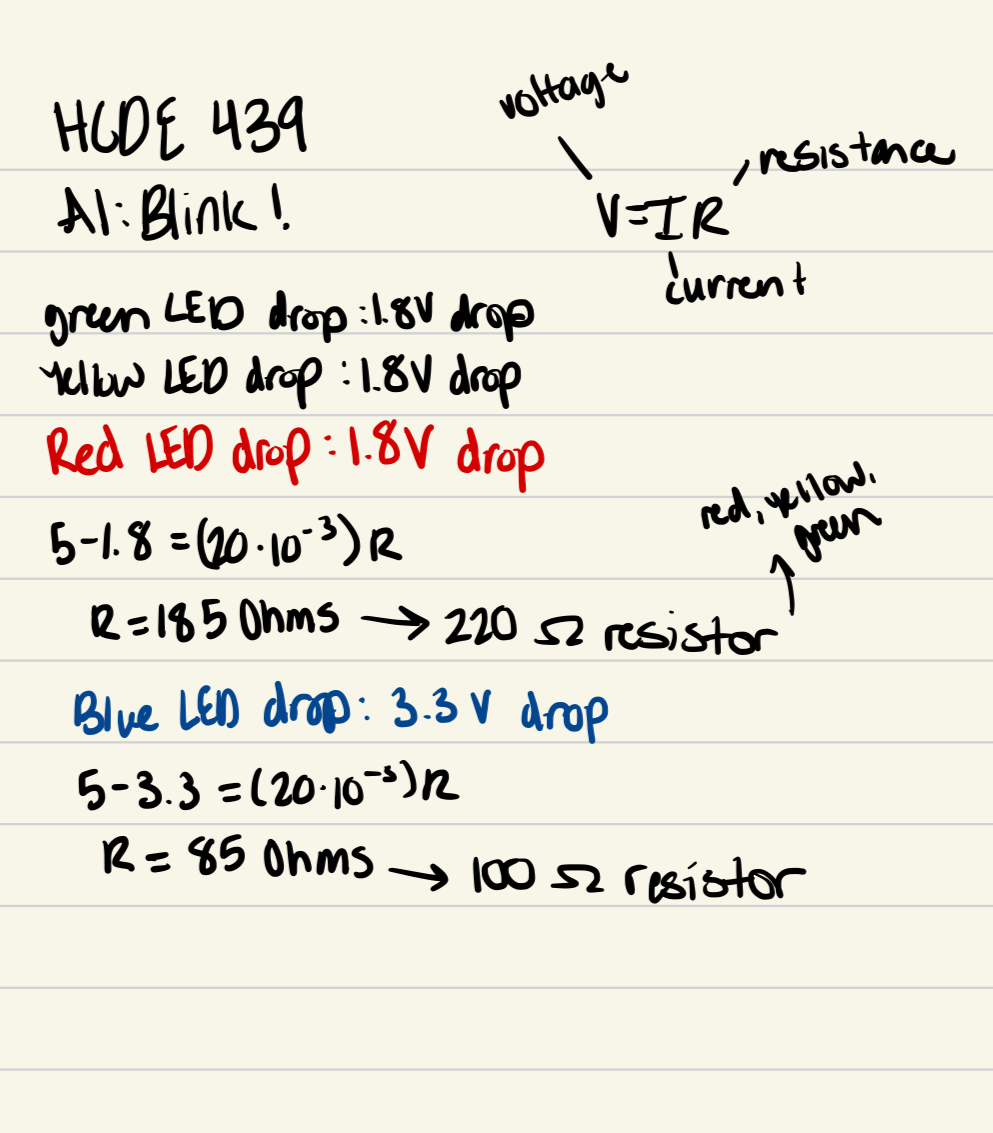 HCDE 439
A1: Blink!
voltage
resistance
V=IR
current
green LED drop: 1.8V drop
Yellow LED drop: 1.8V drop
Red LED drop: 1.8V drop
5-1.8 = (20·10⁻³) R
red, yellow,
green
R = 185 Ohms → 220 Ω resistor
Blue LED drop: 3.3 V drop
5-3.3 = (20·10⁻³) R
R = 85 Ohms → 100 Ω resistor